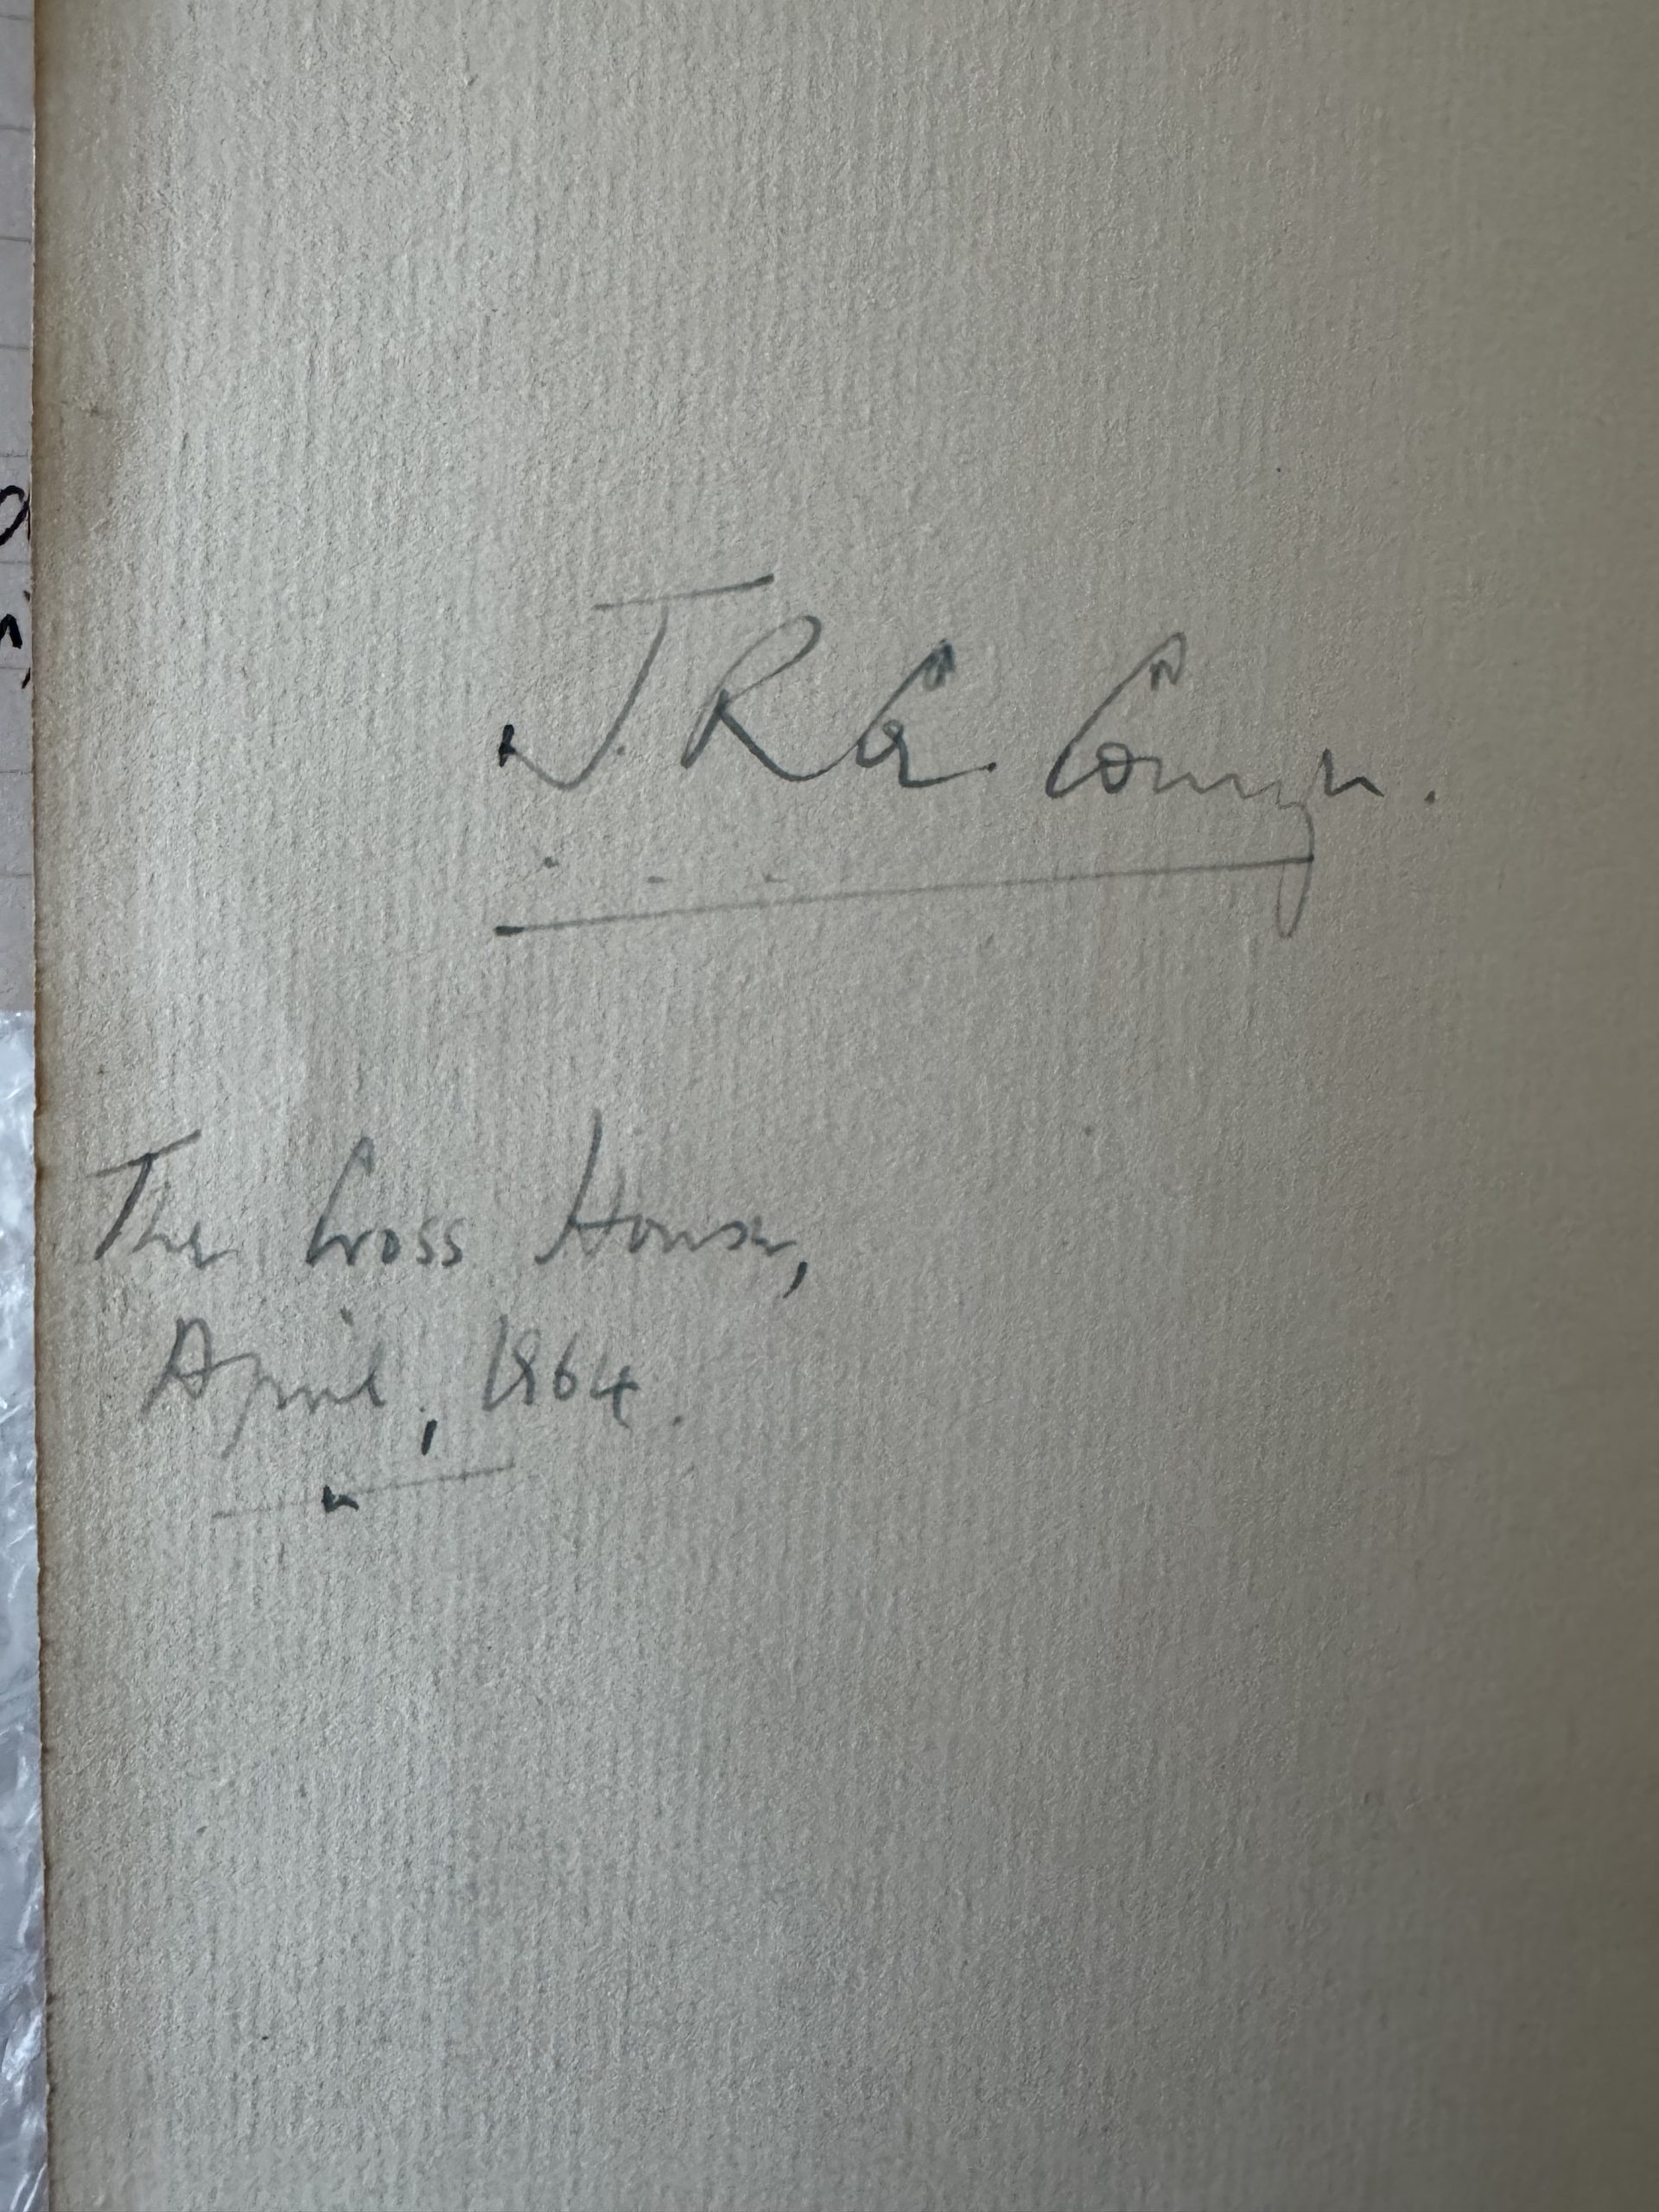 J. R. G. Comyn.
The Cross House,
April, 1964.